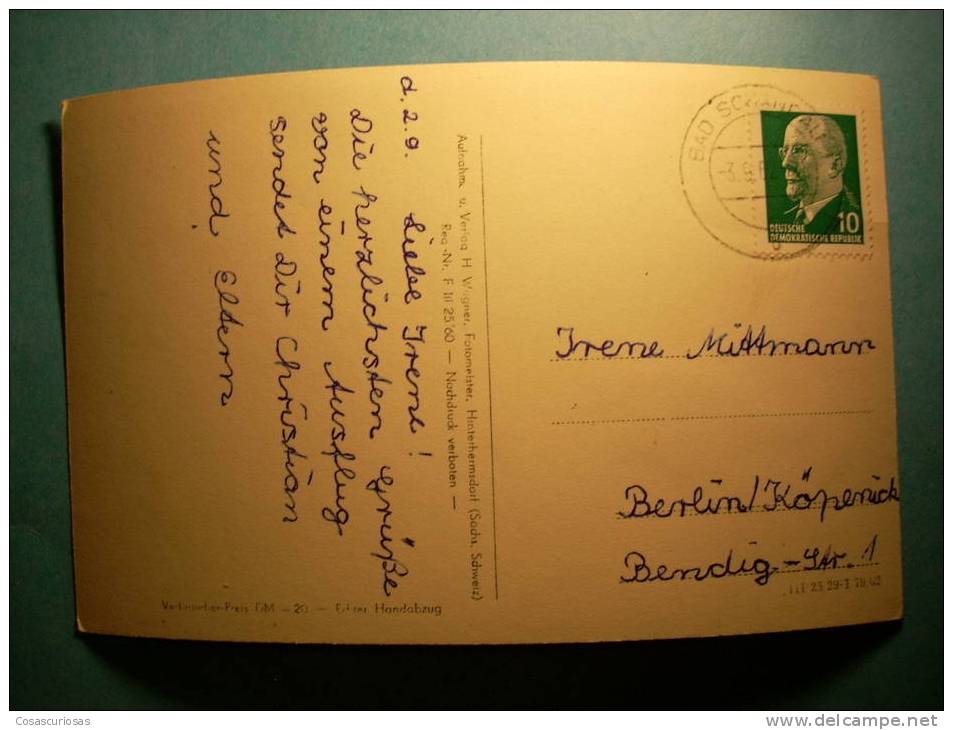 d. 2. 9.
Liebe Irene!
Die herzlichsten Grüße
von einem Ausflug
sendet Dir Christian
und Eltern
Aufnahme u. Verlag H. Wagner, Fotomeister, Hinterhermsdorf (Sächs. Schweiz)
Reg.-Nr. F III 25/60 — Nachdruck verboten —
Verbraucher-Preis DM –,20 — Echter Handabzug
BAD SCHANDAU
10
DEUTSCHE
DEMOKRATISCHE REPUBLIK
Irene Mittmann
Berlin/Köpenick
Bendig-Str. 1
III 23 29-1
Cosascuriosas
www.delcampe.net